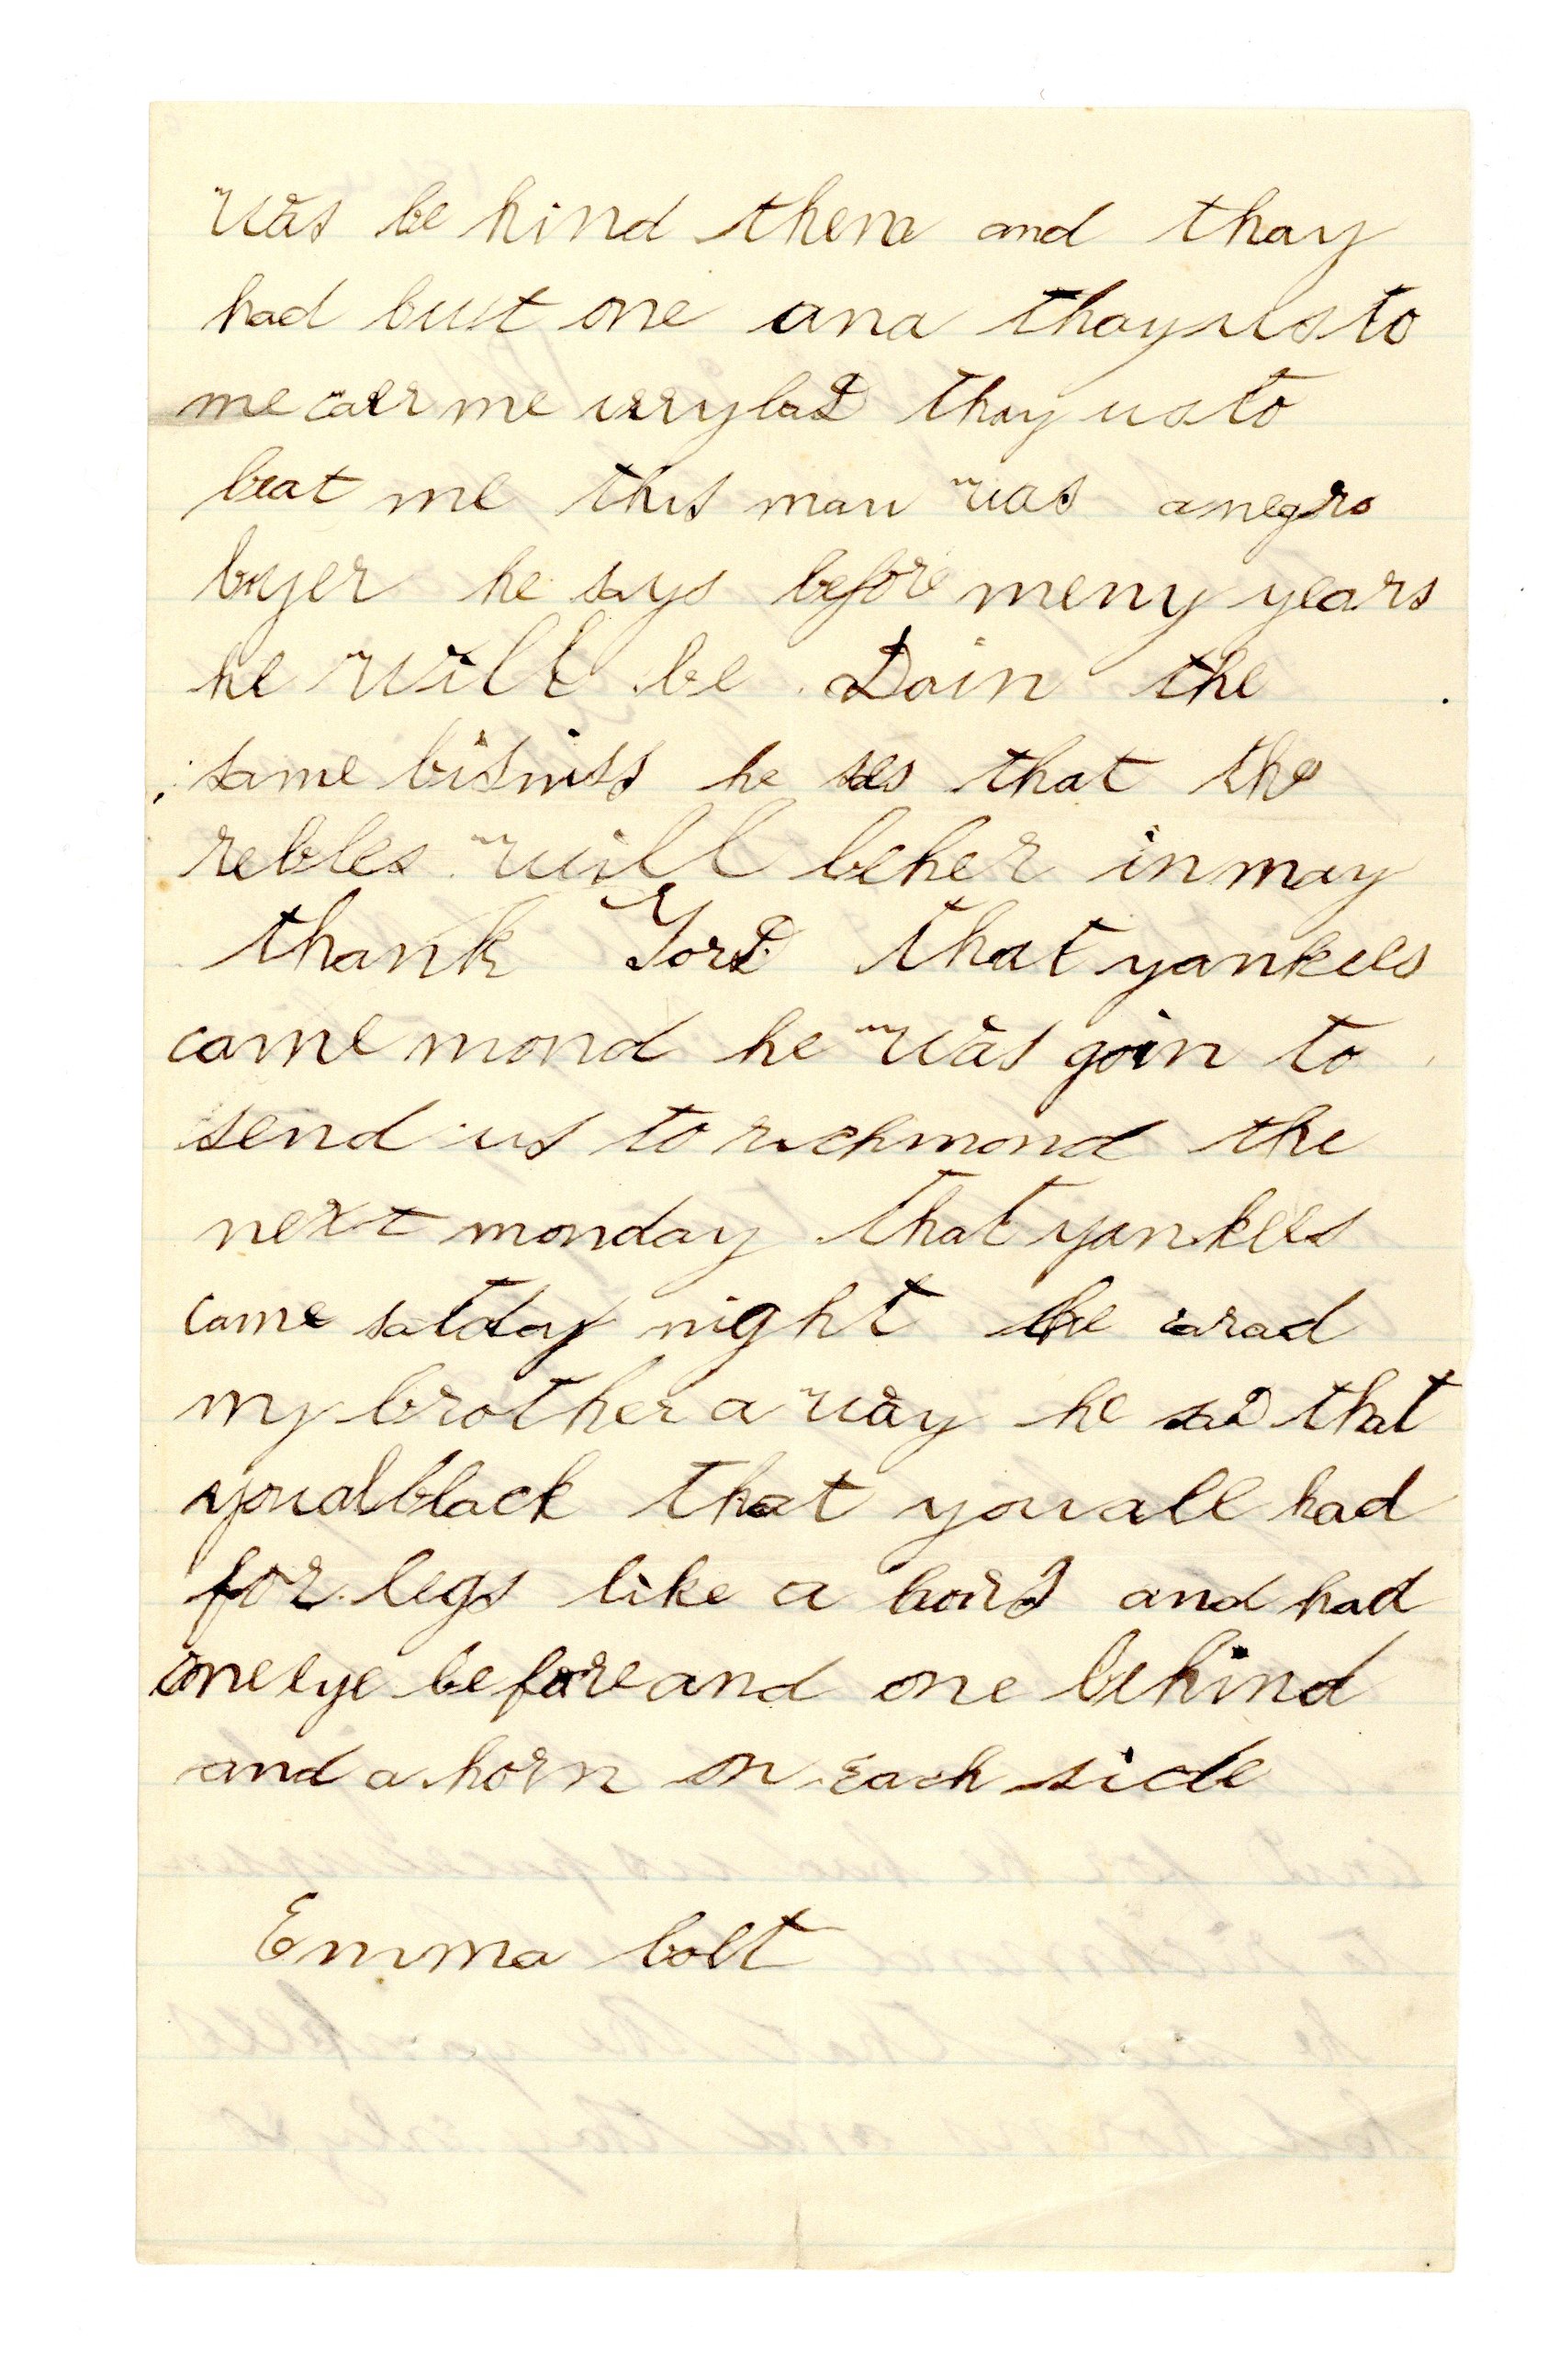 was be hind them and thay
had but one and thay us to
me me very bad thay us to
beat me this man was a negro
byer he says before meny years
he will be Doin the
same bisniss he ses that the
rebles will be her in may
thank Gord that yankees
came mond he was goin to
send us to richmond the
next monday that yankees
came satday night he carad
my brother a way he sad that
you al black that you all had
for legs like a and had
one eye before and one behind
and a horn on each side
Emma bolt